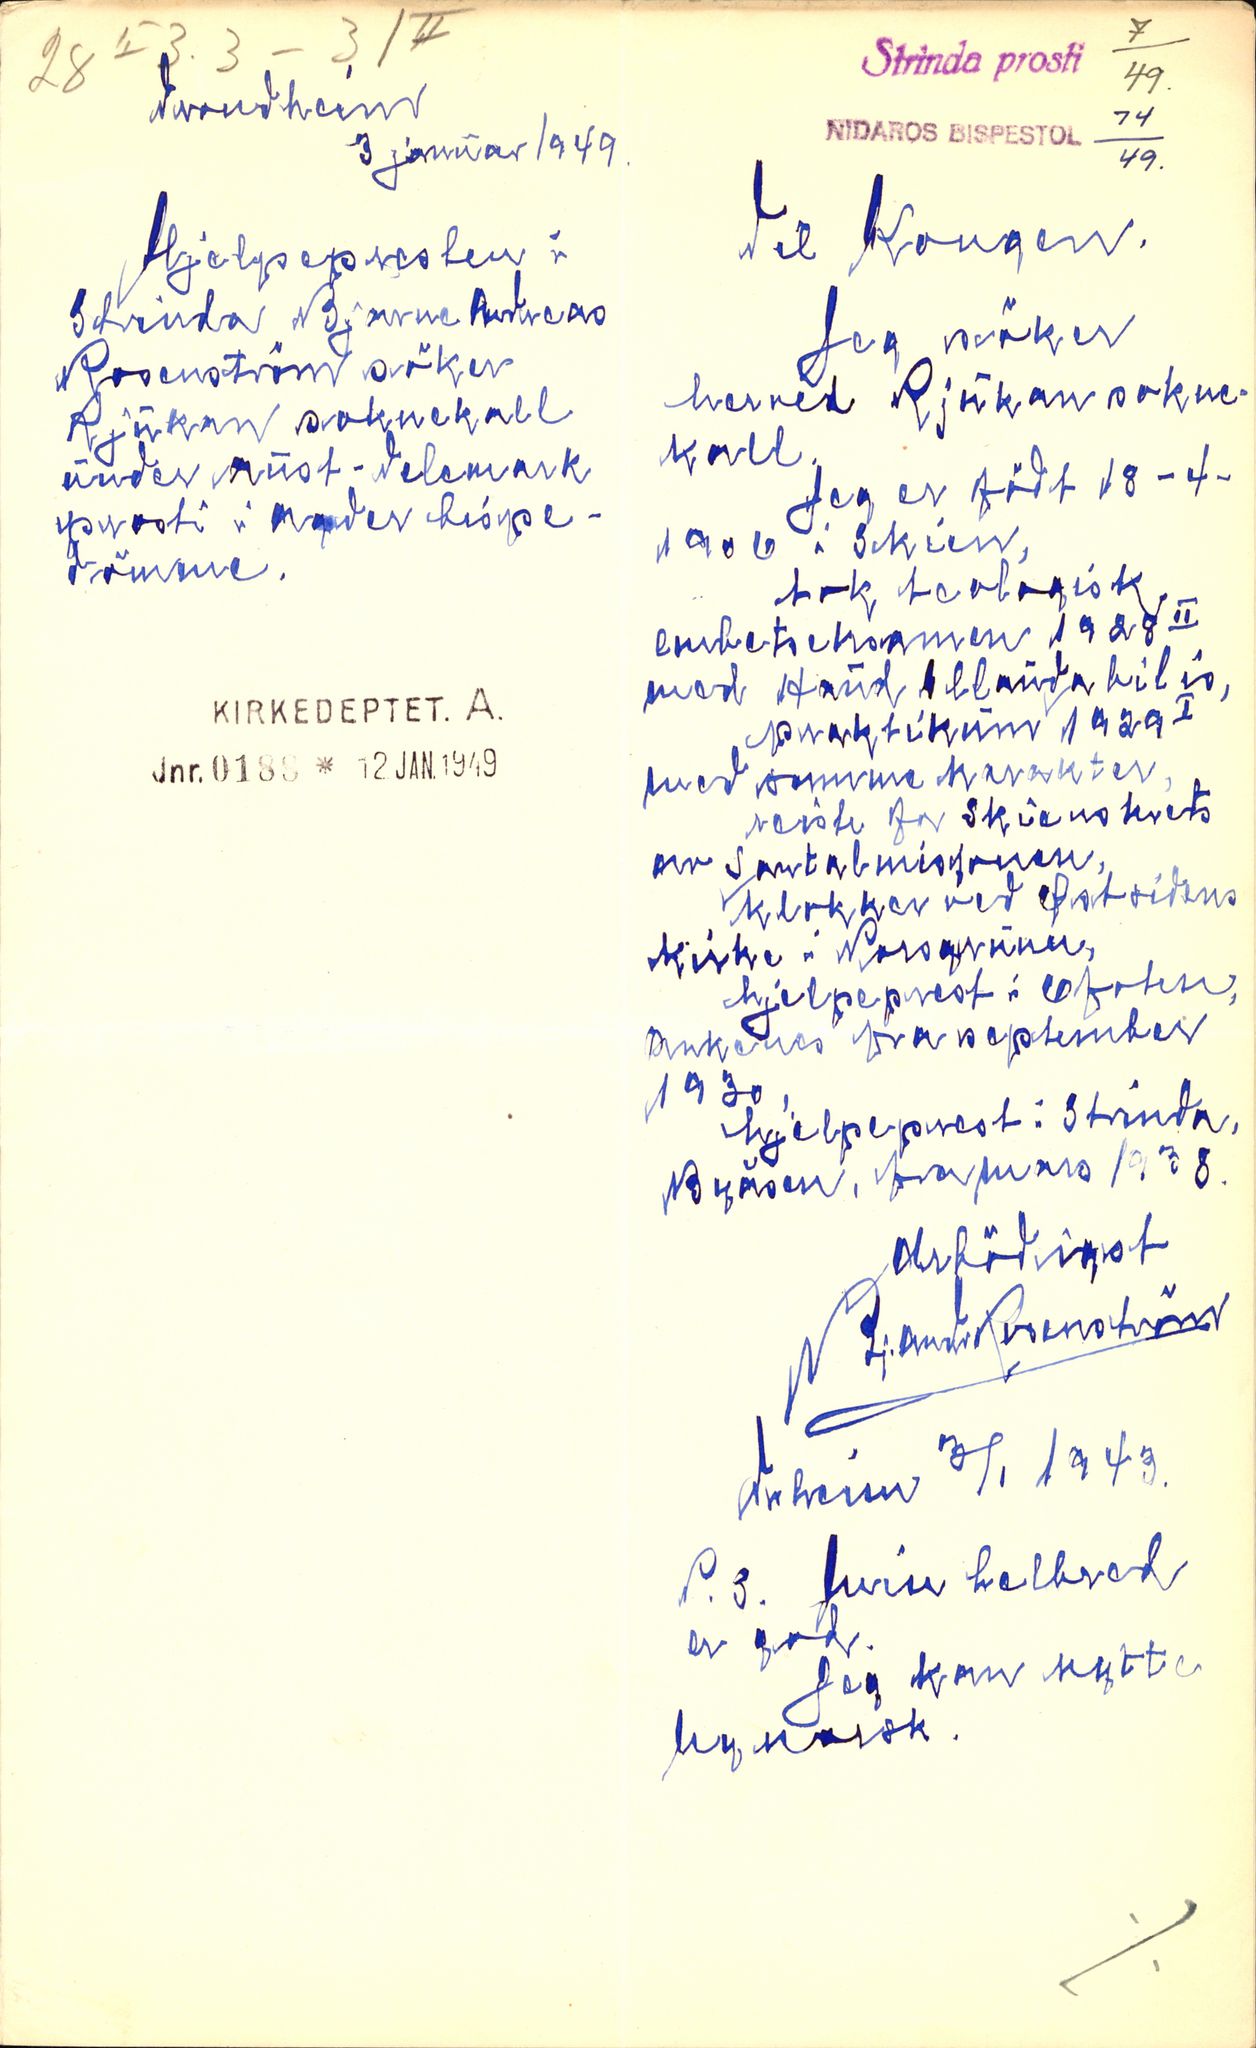 28 II 3. 3 - 3/II
Trondheim
3 januar 1949.
Hjelpepresten i
Strinda Bjarne Andreas
Rosenström söker
Rjukan soknekall
under aust-Telemark
prosti i Agder bispe-
dömme.
KIRKEDEPTET. A.
Jnr. 0188 * 12 JAN. 1949
Strinda prosti 7/49.
NIDAROS BISPESTOL 74/49.
Til Kongen.
Jeg söker
herved Rjukan sokne-
kall.
Jeg er födt 18-4-
1906 i Skien,
tok teologisk
embetseksamen 1928 II
med Haud Illaudabilis,
praktikum 1929 I
med samme karakter,
reiste for Skienskrets
av Santalmisjonen,
klokker ved Østsidens
kirke i Porsgrunn,
hjelpeprest i Ofoten,
Ankenes fra september
1930,
hjelpeprest i Strinda,
Byåsen, fra mars 1938.
Ærbödigst
Bj. Andr. Rosenström
Trheim 3/1 1943.
P.S. Min helbred
er god.
Jeg kan nytte
nynorsk.